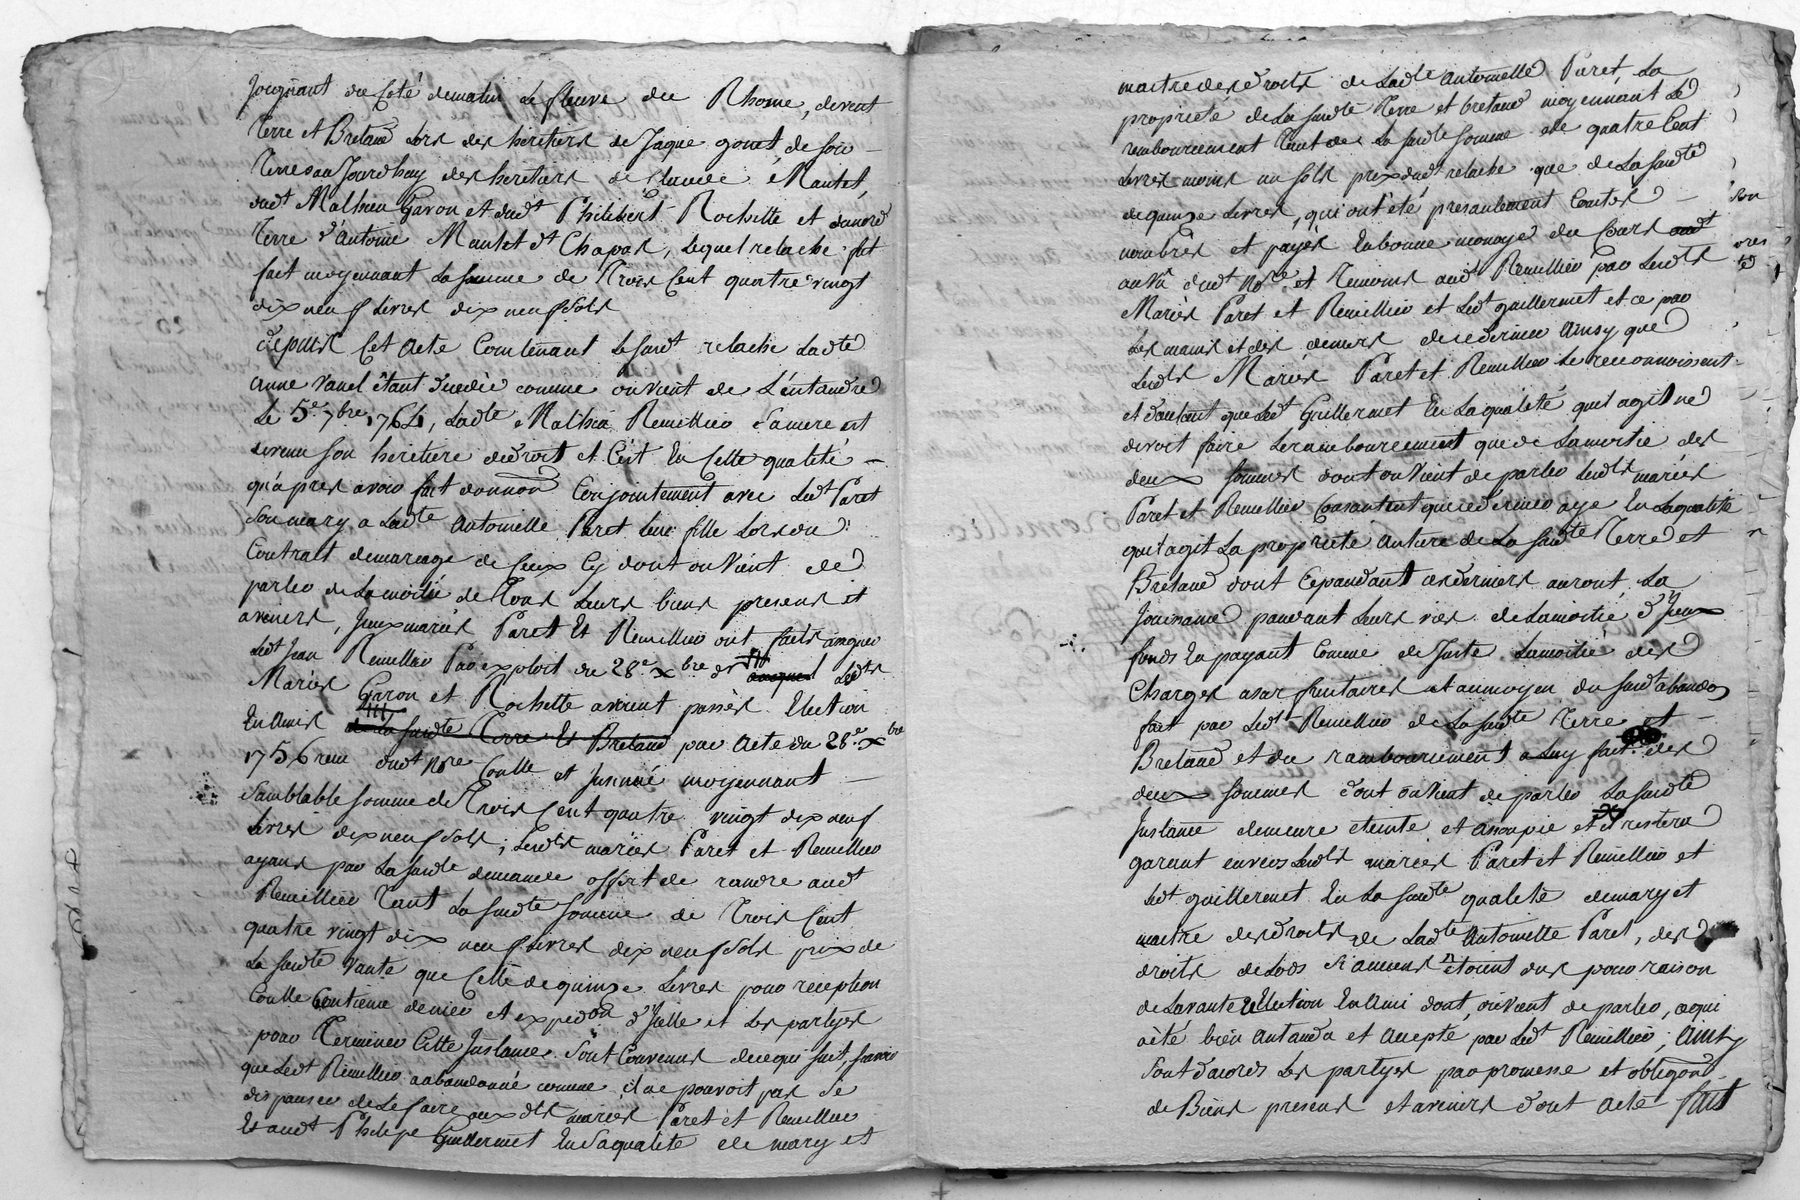 Joignant du Coté dematin Le fleuve du Rhosne, devent
Terre et Bretaud Lors des héritiers de Jaque gonet, de soir
Terre aujourdhuy des heritiers de Claude Mantet,
dudt Mathieu Garon et dudt Philibert Rochette et
Terre d'Antoine Mantet dt Chapas, Lequel relache fut
fait moyennant La somme de Trois Cent quatre vingt
dix neuf Livres dix neuf sols
depuis Cet acte Contenant Le susdt relache Ladte
anne vanel étant comme on vient de L'entandre
Le 5e 7bre 1764, Ladte Mathia Remillieu Samere est
devenu son héritière de droit et C'est En Cette qualité
qu'apres avoir fait donnaon Conjointement avec Ledt Paret
Son mary a Ladte Antoinette Paret Leur fille Lors du
Contrait demariage de Ceux Cy dont on vient de
parler de Lamoitié de Tous Leurs biens presens et
avenirs, Iceux mariés Paret Et Remillieu ont faits assigner
Ledt Jean Remillieu Par exploit du 28e Xbre Lesdts
Mariés Garon et Rochette avoient passés Election
En Amis de La susdte Terre Et Bretaud par Acte du 28e Xbre
1756 reçu dudt Nore Conlle et Insinué moyennant
Samblable Somme de Trois Cent quatre vingt dix neuf
Livres dix neuf sols; Lesdts mariés Paret et Remillieu
ayans par La susdte demande offert de randre audt
Remillieu Tant La susdte Somme de Trois Cent
quatre vingt dix neuf Livres dix neuf sols prix de
La susdte vante que Celle de quinze Livres pour reception
Conlle Centieme denier et expedon d'Icelle et Les partyes
pour Terminer Cette Instance Sont Convenus de ce qui suit, savoir
que Ledt Remillieu a abandonné comme il ne pouvoit pas Se
dispanser de Le faire aux dts mariés Paret et Remillieu
Et audt Philipe Guillermet En Saqualité de mary et
maitre des droits de Ladte Antoinette Paret, La
propriété de La susdte Terre et bretaud moyennant Le
rembourcement Tant de La susdte Somme de quatre Cent
Livres moins un sols prix dudt relache que de La susdte
de quinze Livres, qui ont été presantement Contés
nombrés et payés En bonne monoye du Cours
au vû dudt Nore et Temoins audt Remillieu par Lesdts
Mariés Paret et Remillieu et Ledt guillermet et ce par
Les mains et des deniers de ce dernier Ainsy que
Lesdts Mariés Paret et Remillieu Le reconnoissent
et d'autant que Ledt Guillermet En La qualité qu'il agit ne
devoit faire Le rambourcement que de Lamoitié des
deux Sommes dont on vient de parler Lesdts mariés
Paret et Remillieu Consantent que ce dernier aye En La qualité
qu'il agit La propriete Antiere de La susdte Terre et
Bretaud dont Cepandant ces derniers auront La
Jouissance pandant Leurs vies de Lamoitié d'Iceux
fonds En payant Comme de Juste Lamoitié des
Charges asar fruitaires et au moyen du susdt abandon
fait par Ledt Remillieu de La susdte Terre et
Bretaud et du rambourcement a Luy fait des
deux Sommes dont on vient de parler La susdte
Instance demeure eteinte et assoupie et restera
garent envers Lesdts mariés Paret et Remillieu et
Ledt guillermet En La susdte qualité de mary et
maitre des droits de Ladte Antoinette Paret, des
droits de Lods Si aucuns étoient dus pour raison
de La vante Election En Ami dont on vient de parler, ce qui
a été bien Antandu et Accepté par Ledt Remillieu; Ainsy
Sont d'acords Les partyes par promesse et obligon
de Biens presens et avenirs dont Acte fait